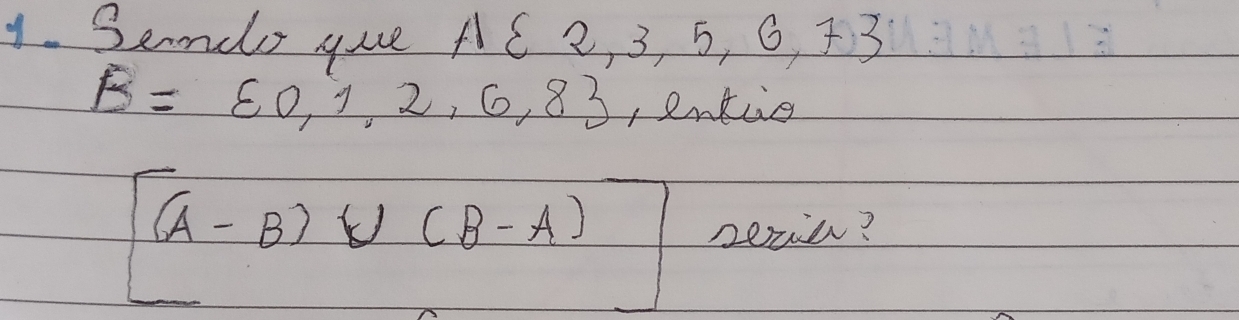 1. Sendo que A { 2, 3, 5, 6, 7}
B = {0, 1, 2, 6, 8}, então
(A - B) U (B - A) seria?